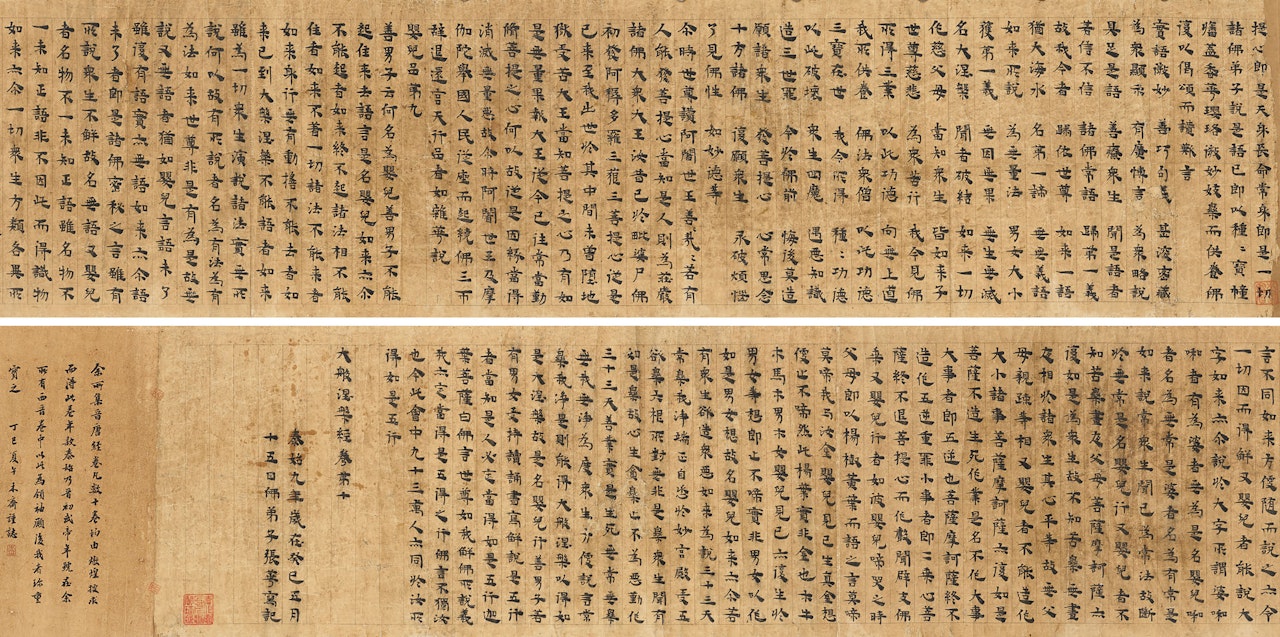 提心即是天身長命常身即是一切
諸佛弟子說是語已即以種〻寶幢
幡蓋香華瓔珞微妙妓樂而供養佛
復以偈頌而讚歎言
實語微妙 善巧句義 甚深密藏
為眾顯示 有廣博言 為眾略說
具足是語 善療眾生 聞是語者
若信不信 諸佛常語 歸第一義
故我今者 歸依世尊 如來一語
猶大海水 名第一諦 無無義語
如來所說 為無量法 男女大小
獲第一義 無因無果 無生無滅
名大涅槃 聞者破結 如來一切
作慈父母 當知眾生 皆如來子
世尊慈悲 為眾苦行 我今見佛
所得三業 以此功德 向無上道
我所供養 佛法眾僧 以此功德
三寶在世 我今所得 種〻功德
以此破壞 眾生四魔 遇惡知識
造三世罪 今於佛前 悔後莫造
願諸眾生 發菩提心 心常思念
十方諸佛 復願眾生 永破煩惱
了見佛性 如妙德等
尒時世尊讚阿闍世王善哉〻〻若有
人能發菩提心當知是人則為莊嚴
諸佛大眾大王汝昔已於毗婆尸佛
初發阿耨多羅三藐三菩提心從是
已來至我出世於其中間未曾墮地
獄受苦大王當知菩提之心乃有如
是無量果報大王從今已往常當勤
脩菩提之心何以故從是因緣當得
消滅無量惡故尒時阿闍世王及摩
伽陀舉國人民從座而起繞佛三帀
辭退還宮天行品者如雜華說
嬰兒品第九
善男子云何名為嬰兒善男子不能
起住來去語言是名嬰兒如來亦尒
不能起者如來終不起諸法相不能
住者如來不著一切諸法不能來者
如來身行無有動搖不能去者如
來已到大般涅槃不能語者如來
雖為一切眾生演說諸法實無所
說何以故有所說者名為有法為有
為法如來世尊非是有為是故無
說又無語者猶如嬰兒言語未了
雖復有語實亦無語如來亦尒語
未了者即是諸佛密秘之言雖有
所說眾生不解故名無語又嬰兒
者名物不一未知正語雖名物不
一未知正語非不因此而得識物
如來亦尒一切眾生方類各異所
言不同如來方便隨而說之亦令
一切因而得解又嬰兒者能說大
字如來亦尒說於大字所謂婆啝
啝者有為婆者無為是名嬰兒啝
者名為無常婆者名為有常
如來說常眾生聞已為常法故斷
於無常是名嬰兒行又嬰兒者不
知苦樂晝夜父母菩薩摩訶薩亦
復如是為眾生故不知苦樂無晝
夜相於諸眾生其心平等故無父
母親疎等相又嬰兒者不能造作
大小諸事菩薩摩訶薩亦復如是
菩薩不造生死作業是名不作大事
大事者即五逆也菩薩摩訶薩終不
造作五逆重罪小事者即二乘心菩
薩終不退菩提心而作聲聞辟支佛
乘又嬰兒行者如彼嬰兒啼哭之時
父母即以楊樹黃葉而語之言莫啼
莫啼我與汝金嬰兒見已生真金想
便止不啼然此楊葉實非金也木牛
木馬木男木女嬰兒見已亦復生於
男女等想即止不啼實非男女以作
如是男女想故名嬰兒如來亦尒若
有眾生欲造眾惡如來為說三十三天
常樂我淨端正自恣於妙宮殿受五
欲樂六根所對無非是樂眾生聞有
如是樂故心生貪樂止不為惡勤作
三十三天善業實是生死無常無樂
無我無淨為度眾生方便說言常
樂我淨是則能得大般涅槃以得如
是大涅槃故是名嬰兒行善男子若
有男女受持讀誦書寫解說是五行
者當知是人必定當得如是五行迦
葉菩薩白佛言世尊如我解佛所說義
我亦定當得是五行佛言不獨汝
也今此會中九十三萬人亦同於汝所
得如是五行
大般涅槃經卷第十
泰始九年歲在癸巳五月
十五日佛弟子張華寫記
余所集晉唐經卷凡數十卷均由燉煌搜求
而得此卷年款泰始乃晉初武帝年號在余
所有西晉卷中以此為領袖願後我者珍重
寶之 丁巳夏午木齋謹誌